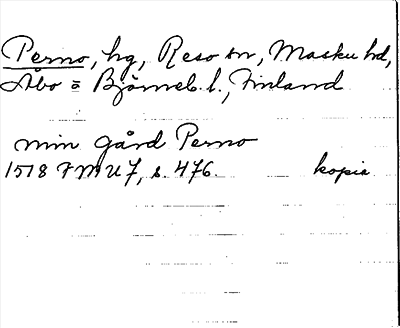 Perno, hg, Reso sn, Masku hd,
Åbo o Björneb. l., Finland
min gård Perno
1518 FMU 7, s. 476. kopia